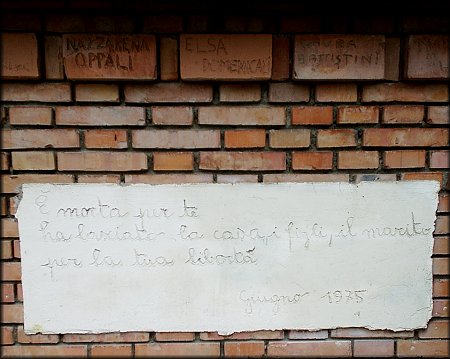 NAZZARENA
OPPALI
ELSA
DOMENICA
BATTISTINI
È morta per te
ha lasciato la casa, i figli, il marito
per la tua libertà
Giugno 1975